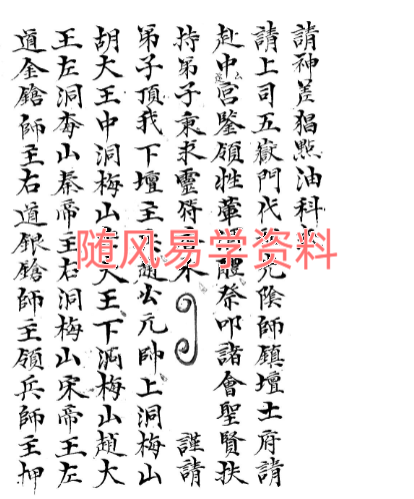 請神差猖點油科
請上司五嶽門代元陰師鎮壇土府請
赴中宮鑒領牲葷醴祭叩諸會聖賢扶
持弟子秉求靈符水 謹請
弟子頂我下壇主趙公元帥上洞梅山
胡大王中洞梅山大王下洞梅山趙大
王左洞梅山秦帝王右洞梅山宋帝王左
道金鎗師主右道銀鎗師主領兵師主押
随风易学资料